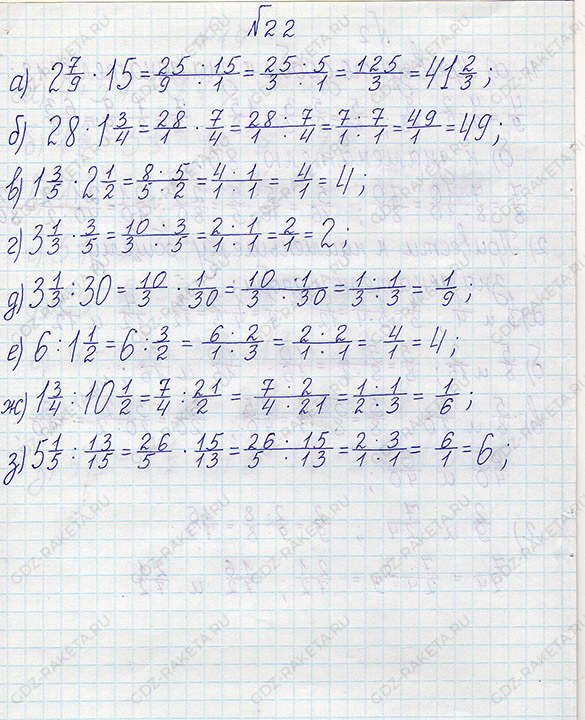 №22
а) 2 7/9 · 15 = 25 · 15 / 9 · 1 = 25 · 5 / 3 · 1 = 125/3 = 41 2/3 ;
б) 28 · 1 3/4 = 28/1 · 7/4 = 28 · 7 / 1 · 4 = 7 · 7 / 1 · 1 = 49/1 = 49 ;
в) 1 3/5 · 2 1/2 = 8 · 5 / 5 · 2 = 4 · 1 / 1 · 1 = 4/1 = 4 ;
г) 3 1/3 · 3/5 = 10 · 3 / 3 · 5 = 2 · 1 / 1 · 1 = 2/1 = 2 ;
д) 3 1/3 : 30 = 10/3 · 1/30 = 10 · 1 / 3 · 30 = 1 · 1 / 3 · 3 = 1/9 ;
е) 6 : 1 1/2 = 6 : 3/2 = 6 · 2 / 1 · 3 = 2 · 2 / 1 · 1 = 4/1 = 4 ;
ж) 1 3/4 : 10 1/2 = 7/4 : 21/2 = 7 · 2 / 4 · 21 = 1 · 1 / 2 · 3 = 1/6 ;
з) 5 1/5 : 13/15 = 26/5 · 15/13 = 26 · 15 / 5 · 13 = 2 · 3 / 1 · 1 = 6/1 = 6 ;
GDZ-RAKETA.RU